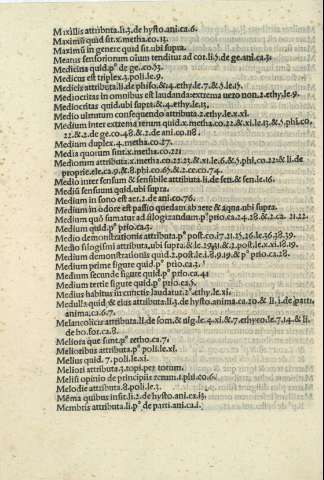 Maxillis attributa.li.3.de hysto.ani.ca.6.
Maximū quid sit.x.metha.co.13.
Maximū in genere quid sit.ubi supra.
Meatus sensoriorum oium tenditur ad cor.li.5.de ge.ani.ca.3:
Medicina quid.pº de ge.co.53.
Medicus est triplex.3.poli.le.9.
Medicis attributa.li.de phiso.&.4.ethy.le.7.&.5.le.15.
Mediocritas in omnibus est laudanda:extrema uero non.2.ethy.le.9.
Mediocritas quid.ubi supra.&.4.ethy.le.13.
Medio ultimatum consequendo attributa.2.ethy.le.x.xi.
Medium inter extrema rerum quid.x.metha.co.22.&.xi.le.13.&.5.phi.co.
22.&.2.de ge.co.48.&.2.de ani.co.118.
Medium duplex.4.metha.co.27.
Media quorum sunt.x.metha.co.22:
Mediorum attributa.x.metha.co.22.23.&.xi.le.6.&.5.phi.co.22:&.li.de
proprie.ele.ca.9.&.8.phi.co.65.&.2.ce.co.74.
Medio inter sensum & sensibile attributa.li.de sen.&.sen.le.16.
Mediū sensuum quid.ubi supra.
Medium in sono est aer.2.de ani.co.76.
Medium in odore est passio quedam ab aere & aqua.ubi supra.
Medium quō sumatur ad silogizandum.pº prio.ca.24.28.&.2.ca. 21.22.
Medium quid.pº prio.ca.3.
Medio demonstrationis attributa.pº post.co.17.21.25.26.le.36.38.39.
Medio silogismi attributa.ubi supra.&.le.19.31.&.2.post.le.x.xi.18.19.
Medium demonstrationis quid.2.post.le.1.8.9.19.&.pº prio.ca.28.
Medium prime figure quid.pº prio.ca.3.
Medium secunde figure quid.pº prio.ca.4:
Medium tertie figure quid.pº prio.ca.5.
Medius habitus in cunctis laudatur.2.ethy.le.xi.
Medulla quid & eius attributa.li.3.de hysto.anima.ca.20.&.li.2.de parti.
anima.ca.6.7.
Melancolicis attributa.li.de som.& uig.le.4.xi.&.7.ethy.co.le.7.14.&.li.
de bo.for.ca.8.
Meliora que sunt.pº retho.ca.7.
Melioribus attributa.pº poli.le.xi.
Melius quid. 7.poli.le.xi.
Meliori attributa.3.topi.per totum.
Melisi opinio de principiis rerum.1.phi.co.6.
Melodie attributa.8.poli.le.3.
Mēma quibus insit.li.2.de hysto.ani.ca.13.
Membris attributa.li.pº de parti.ani.ca.1.